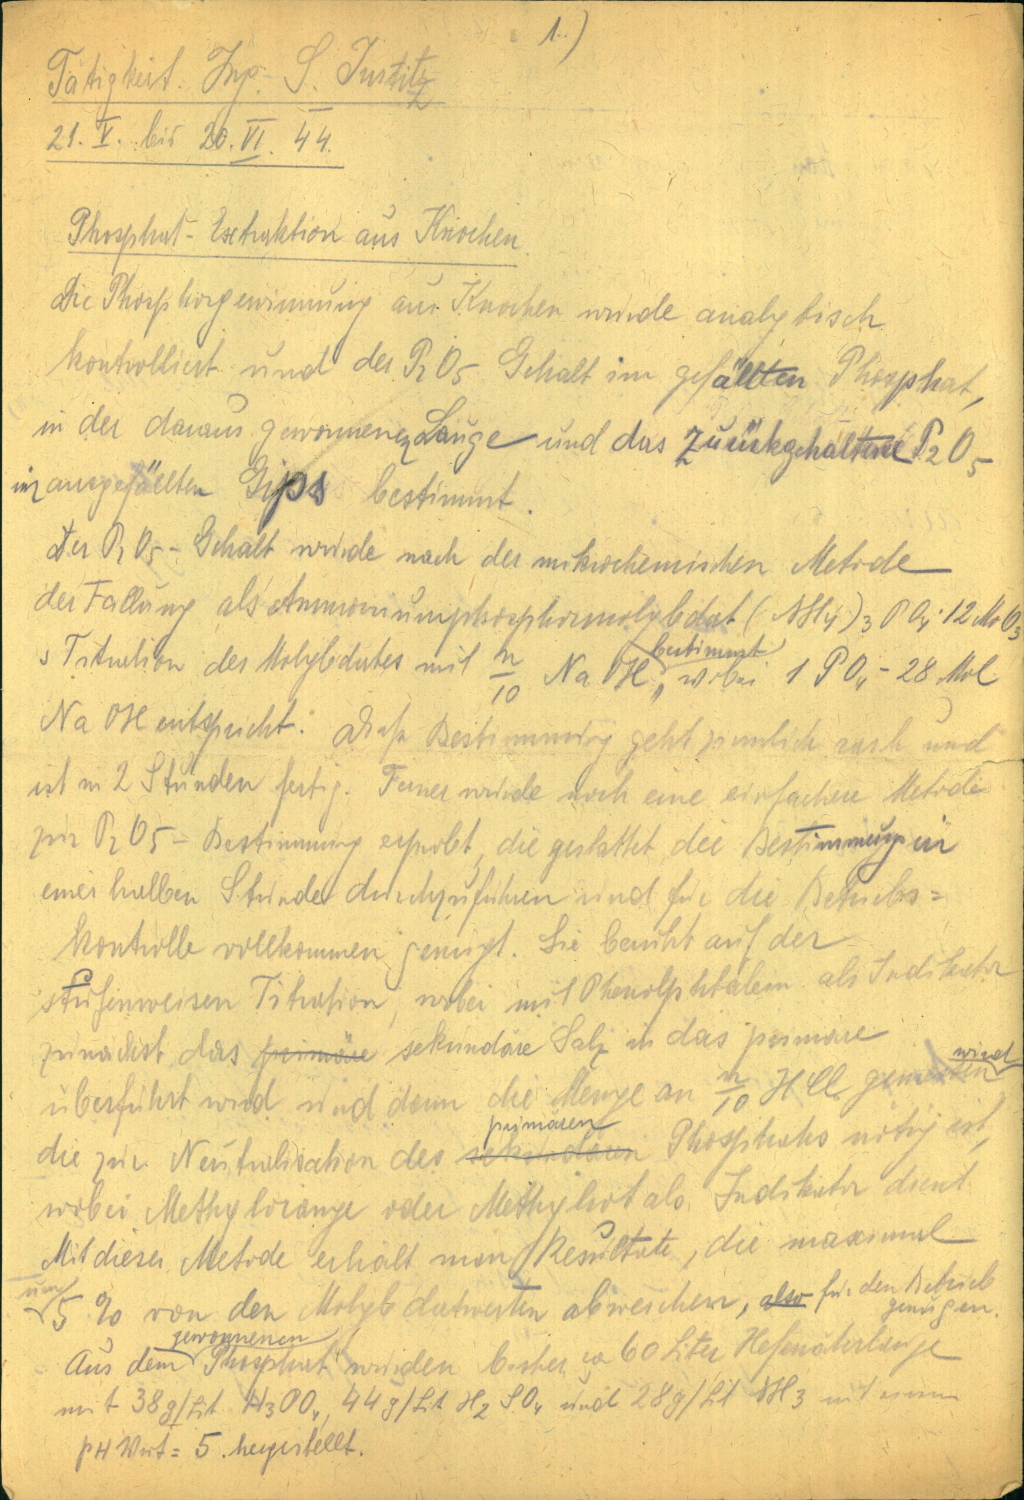 1.)
Tätigkeit Ing. S. Justitz
21. V. bis 20. VI. 44.
Phosphat-Extraktion aus Knochen
Die Phosphorgewinnung aus Knochen wurde analytisch
kontrolliert und der P2O5 Gehalt im gefällten Phosphat,
in der daraus gewonnenen Lauge und das zurückgehaltene P2O5
im ausgefällten Gips bestimmt.
Der P2O5-Gehalt wurde nach der mikrochemischen Metode
der Fällung als Ammoniumphosphormolybdat (NH4)3 PO4·12MoO3
Titration des Molybdates mit n/10 NaOH bestimmt, wobei 1 PO4 - 28 Mol
NaOH entspricht. Diese Bestimmung geht ziemlich rasch und
ist in 2 Stunden fertig. Ferner wurde noch eine einfachere Metode
zur P2O5-Bestimmung erprobt, die gestattet die Bestimmung in
einer halben Stunde durchzuführen und für die Betriebs=
kontrolle vollkommen genügt. Sie beruht auf der
stufenweisen Titration, wobei mit Phenolphtalein als Indikator
zunächst das primäre sekundäre Salz in das primäre
überführt wird und dann die Menge an n/10 HCl gemessen wird
die zur Neutralisation des sekundären primären Phosphates nötig ist,
wobei Methylorange oder Methylrot als Indikator dient.
Mit dieser Metode erhält man Resultate, die maximal
um 5 % von den Molybdatwerten abweichen, also für den Betrieb genügen.
Aus dem gewonnenen Phosphat wurden bisher ca 60 Liter Hefenährlauge
mit 38g/Lit H3PO4, 44g/Lit H2SO4 und 28g/Lit NH3 mit einem
pH Wert = 5 hergestellt.